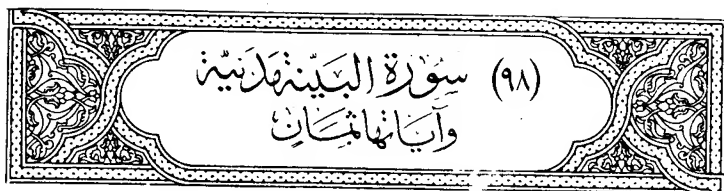 (٩٨) سُورَة البَيِّنَة مَدَنِيَّة
وَآيَاتُهَا ثَمَان